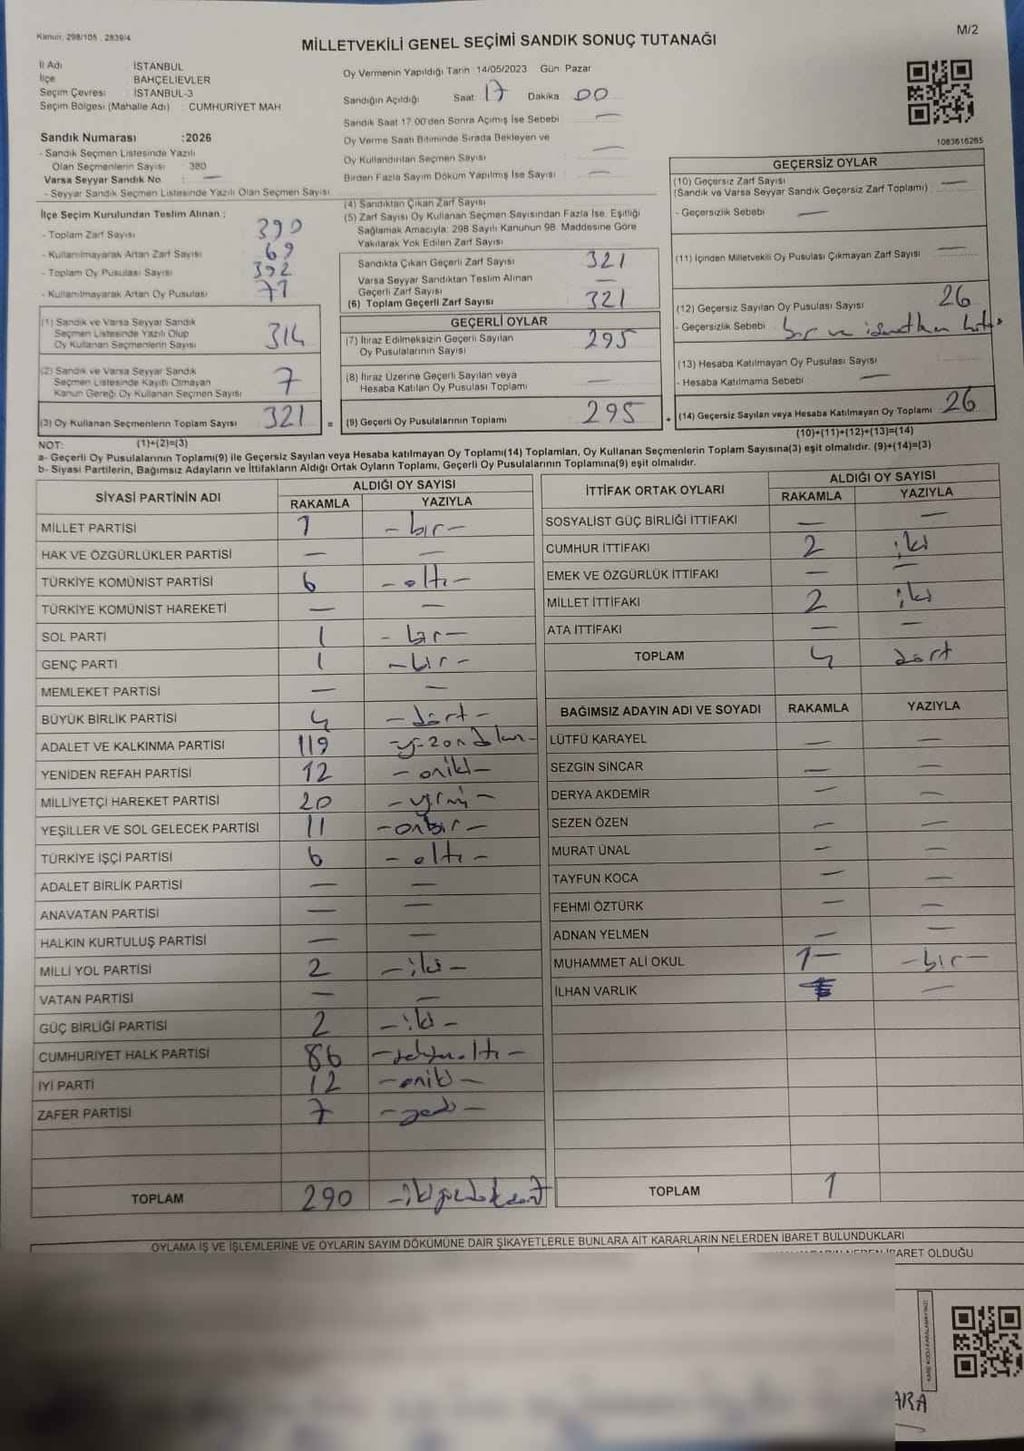 Kanun: 298/105 , 2839/4
M/2
MİLLETVEKİLİ GENEL SEÇİMİ SANDIK SONUÇ TUTANAĞI
İl Adı İSTANBUL
İlçe BAHÇELİEVLER
Seçim Çevresi İSTANBUL-3
Seçim Bölgesi (Mahalle Adı) CUMHURİYET MAH
Sandık Numarası :2026
- Sandık Seçmen Listesinde Yazılı
Olan Seçmenlerin Sayısı 380
Varsa Seyyar Sandık No : —
- Seyyar Sandık Seçmen Listesinde Yazılı Olan Seçmen Sayısı
İlçe Seçim Kurulundan Teslim Alınan ;
- Toplam Zarf Sayısı 390
- Kullanılmayarak Artan Zarf Sayısı 69
- Toplam Oy Pusulası Sayısı 392
- Kullanılmayarak Artan Oy Pusulası 71
(1) Sandık ve Varsa Seyyar Sandık
Seçmen Listesinde Yazılı Olup
Oy Kullanan Seçmenlerin Sayısı 314
(2) Sandık ve Varsa Seyyar Sandık
Seçmen Listesinde Kayıtlı Olmayan
Kanun Gereği Oy Kullanan Seçmen Sayısı 7
(3) Oy Kullanan Seçmenlerin Toplam Sayısı 321
Oy Vermenin Yapıldığı Tarih 14/05/2023 Gün Pazar
Sandığın Açıldığı Saat 17 Dakika 00
Sandık Saat 17.00'den Sonra Açımış İse Sebebi —
Oy Verme Saati Bitiminde Sırada Bekleyen ve
Oy Kullandırılan Seçmen Sayısı —
Birden Fazla Sayım Döküm Yapılmış İse Sayısı —
(4) Sandıktan Çıkan Zarf Sayısı
(5) Zarf Sayısı Oy Kullanan Seçmen Sayısından Fazla İse, Eşitliği
Sağlamak Amacıyla; 298 Sayılı Kanunun 98. Maddesine Göre
Yakılarak Yok Edilen Zarf Sayısı
Sandıkta Çıkan Geçerli Zarf Sayısı 321
Varsa Seyyar Sandıktan Teslim Alınan
Geçerli Zarf Sayısı —
(6) Toplam Geçerli Zarf Sayısı 321
GEÇERLİ OYLAR
(7) İtiraz Edilmeksizin Geçerli Sayılan
Oy Pusulalarının Sayısı 295
(8) İtiraz Üzerine Geçerli Sayılan veya
Hesaba Katılan Oy Pusulası Toplamı —
= (9) Geçerli Oy Pusulalarının Toplamı 295
1083616265
GEÇERSİZ OYLAR
(10) Geçersiz Zarf Sayısı
(Sandık ve Varsa Seyyar Sandık Geçersiz Zarf Toplamı) —
- Geçersizlik Sebebi : —
(11) İçinden Milletvekili Oy Pusulası Çıkmayan Zarf Sayısı —
(12) Geçersiz Sayılan Oy Pusulası Sayısı 26
- Geçersizlik Sebebi :
(13) Hesaba Katılmayan Oy Pusulası Sayısı —
- Hesaba Katılmama Sebebi : —
+ (14) Geçersiz Sayılan veya Hesaba Katılmayan Oy Toplamı 26
NOT: (1)+(2)=(3)
(10)+(11)+(12)+(13)=(14)
a- Geçerli Oy Pusulalarının Toplamı(9) ile Geçersiz Sayılan veya Hesaba katılmayan Oy Toplamı(14) Toplamları, Oy Kullanan Seçmenlerin Toplam Sayısına(3) eşit olmalıdır. (9)+(14)=(3)
b- Siyasi Partilerin, Bağımsız Adayların ve İttifakların Aldığı Ortak Oyların Toplamı, Geçerli Oy Pusulalarının Toplamına(9) eşit olmalıdır.
SİYASİ PARTİNİN ADI ALDIĞI OY SAYISI
RAKAMLA YAZIYLA
MİLLET PARTİSİ 1 - bir -
HAK VE ÖZGÜRLÜKLER PARTİSİ — —
TÜRKİYE KOMÜNİST PARTİSİ 6 - altı -
TÜRKİYE KOMÜNİST HAREKETİ — —
SOL PARTİ 1 - bir -
GENÇ PARTİ 1 - bir -
MEMLEKET PARTİSİ — —
BÜYÜK BİRLİK PARTİSİ 4 - dört -
ADALET VE KALKINMA PARTİSİ 119
YENİDEN REFAH PARTİSİ 12 - oniki -
MİLLİYETÇİ HAREKET PARTİSİ 20 - yirmi -
YEŞİLLER VE SOL GELECEK PARTİSİ 11 - onbir -
TÜRKİYE İŞÇİ PARTİSİ 6 - altı -
ADALET BİRLİK PARTİSİ — —
ANAVATAN PARTİSİ — —
HALKIN KURTULUŞ PARTİSİ — —
MİLLİ YOL PARTİSİ 2 - iki -
VATAN PARTİSİ — —
GÜÇ BİRLİĞİ PARTİSİ 2 - iki -
CUMHURİYET HALK PARTİSİ 86 - seksenaltı -
İYİ PARTİ 12 - oniki -
ZAFER PARTİSİ 7 - yedi -
TOPLAM 290
İTTİFAK ORTAK OYLARI ALDIĞI OY SAYISI
RAKAMLA YAZIYLA
SOSYALİST GÜÇ BİRLİĞİ İTTİFAKI — —
CUMHUR İTTİFAKI 2 iki
EMEK VE ÖZGÜRLÜK İTTİFAKI — —
MİLLET İTTİFAKI 2 iki
ATA İTTİFAKI — —
TOPLAM 4 dört
BAĞIMSIZ ADAYIN ADI VE SOYADI RAKAMLA YAZIYLA
LÜTFÜ KARAYEL — —
SEZGİN SİNCAR — —
DERYA AKDEMİR — —
SEZEN ÖZEN — —
MURAT ÜNAL — —
TAYFUN KOCA — —
FEHMİ ÖZTÜRK — —
ADNAN YELMEN — —
MUHAMMET ALİ OKUL 1 - - bir -
İLHAN VARLIK —
TOPLAM 1
OYLAMA İŞ VE İŞLEMLERİNE VE OYLARIN SAYIM DÖKÜMÜNE DAİR ŞİKAYETLERLE BUNLARA AİT KARARLARIN NELERDEN İBARET BULUNDUKLARI
İBARET OLDUĞU
ARA